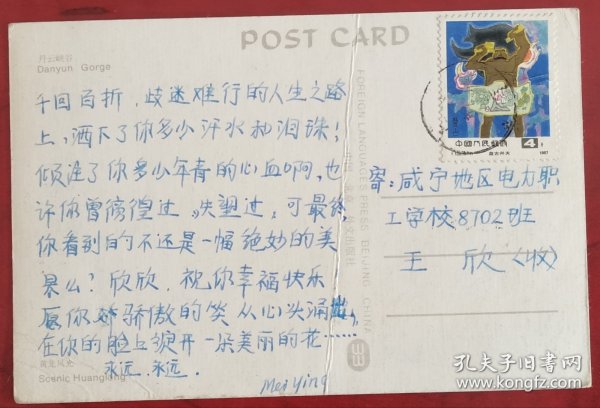 丹云峡谷
Danyun Gorge
POST CARD
千回百折，歧迷难行的人生之路
上，洒下了你多少汗水和泪珠！
倾注了你多少年青的心血啊，也
许你曾徬徨过、失望过，可最终，
你看到的不还是一幅绝妙的美
景么？欣欣，祝你幸福快乐
愿你娇骄傲的笑从心头涌
在你的脸上绽开一朵美丽的花……
永远、永远。
Mei Ying
黄龙风光
Scenic Huanglong
FOREIGN LANGUAGES PRESS BEIJING CHINA
中国人民邮政
4分
1987
盘古开天
寄：咸宁地区电力职
工学校8702班
王 欣（收）
孔夫子旧书网
www.kongfz.com